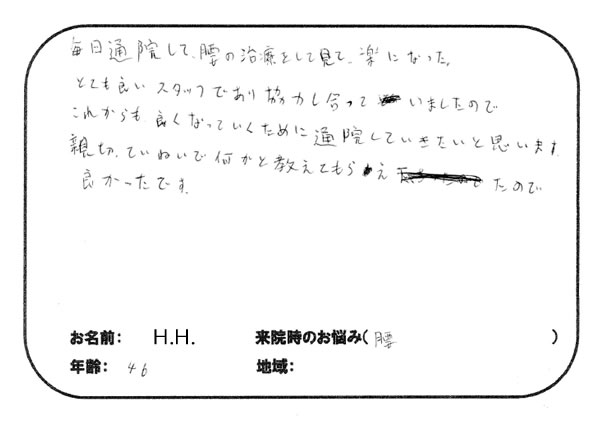 毎日通院して、腰の治療をして見て、楽になった。
とても良いスタッフであり協力し合っていましたので
これからも良くなっていくために通院していきたいと思います
親切、ていねいで何かと教えてもらえたので
良かったです。
お名前: H.H. 来院時のお悩み(腰)
年齢: 46 地域: